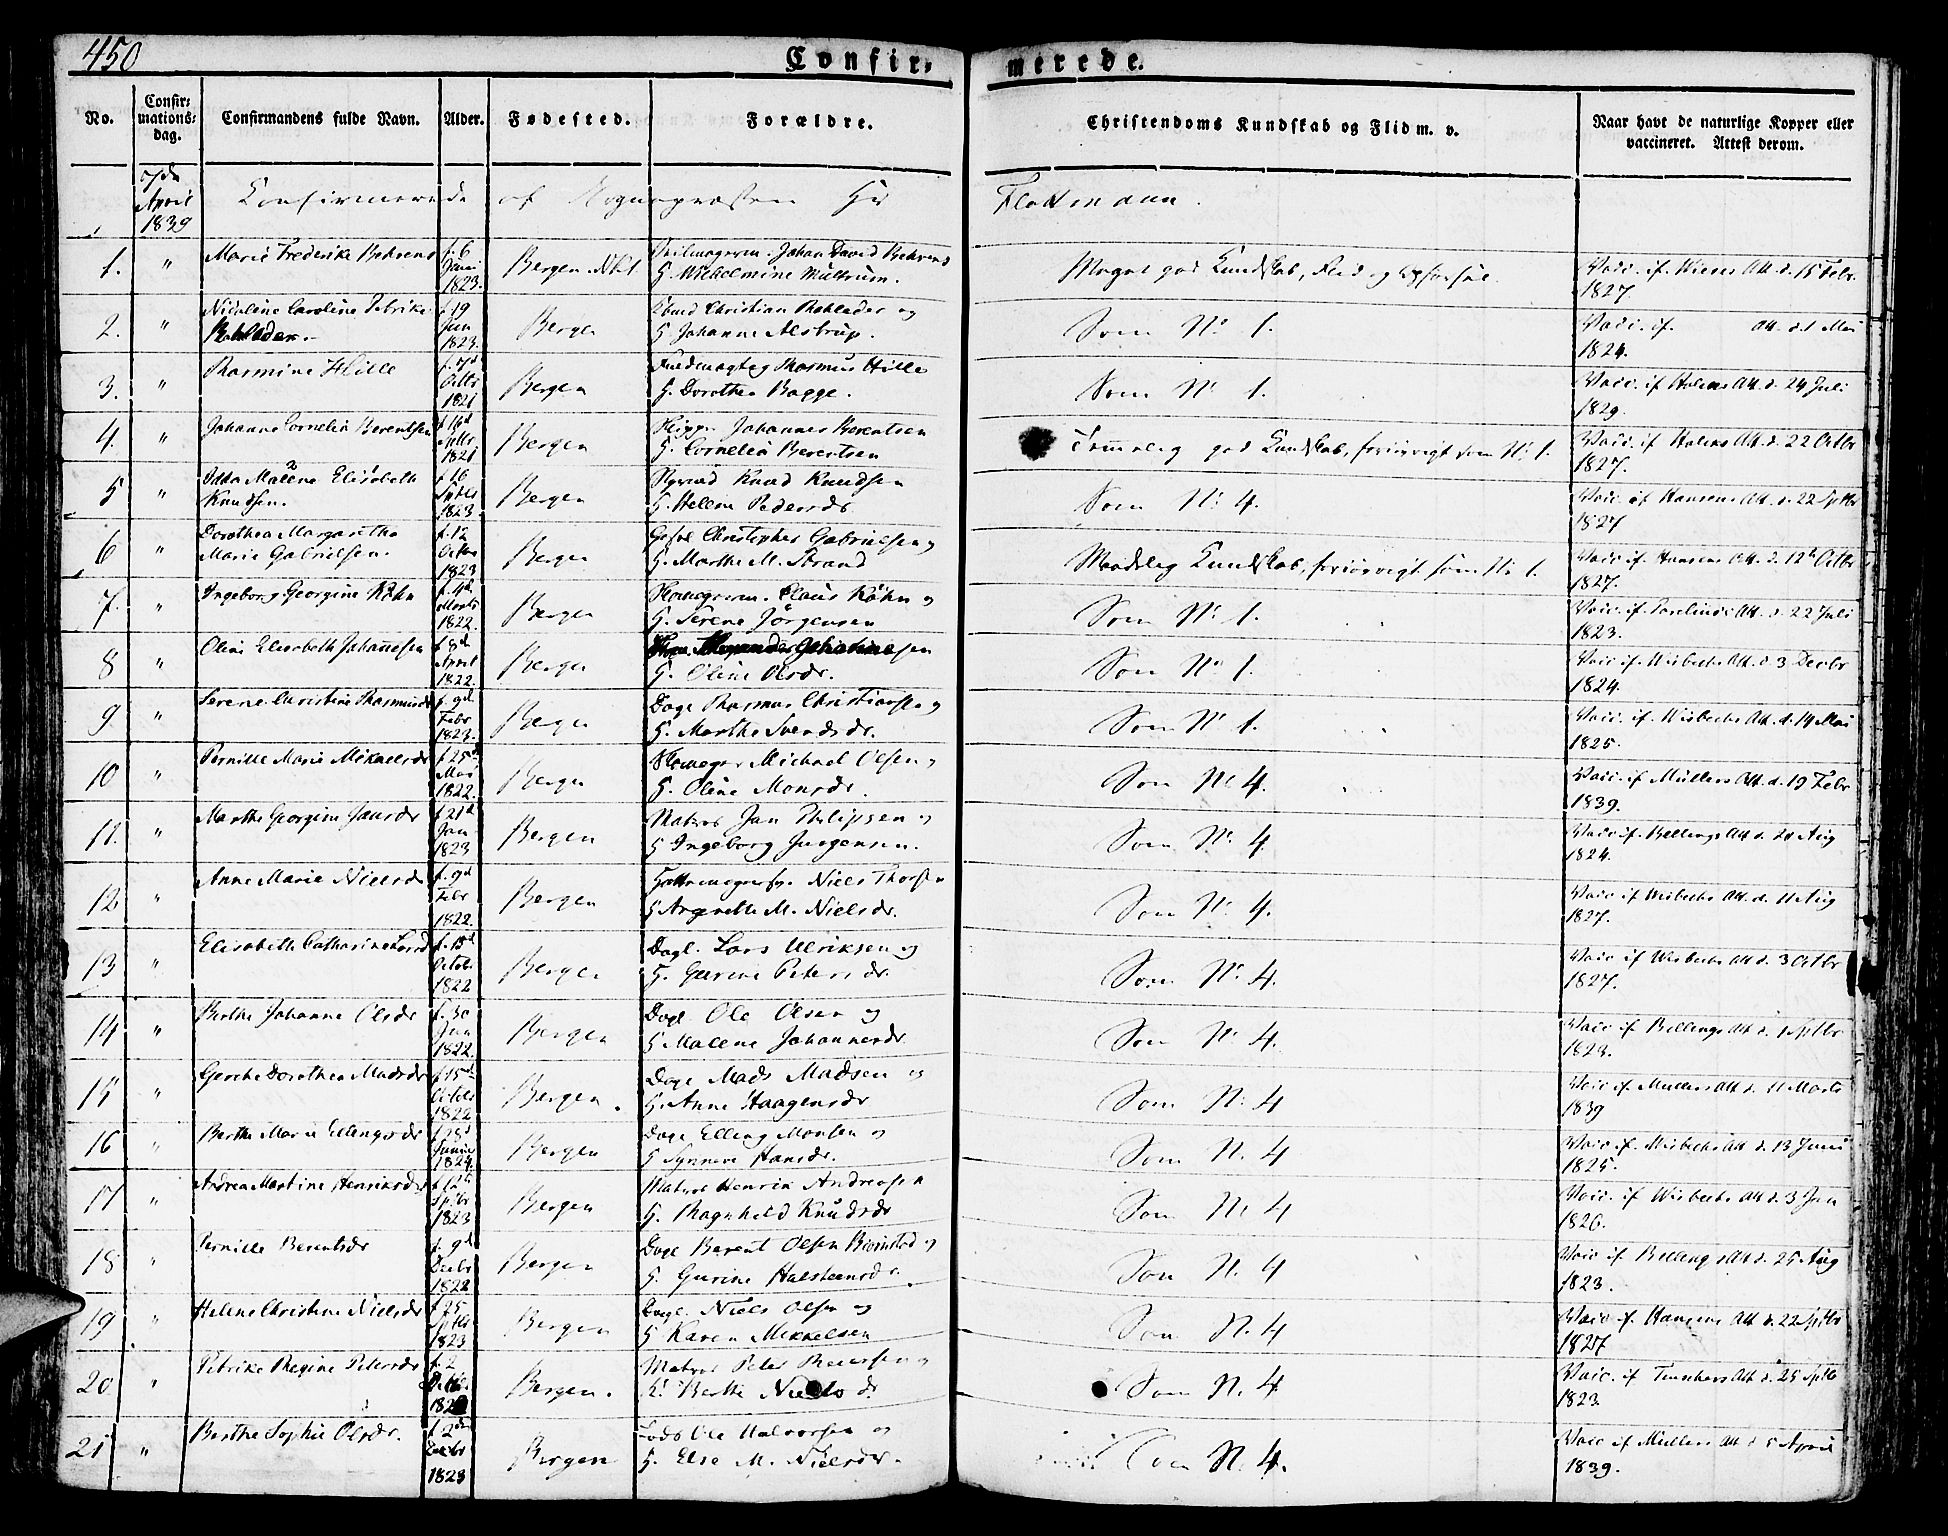 450
Confir-
merede.
No.
Confir-
mations-
dag.
Confirmandens fulde Navn.
Alder.
Fødested.
Forældre.
Christendoms Kundskab og Flid m. v.
Naar havt de naturlige Kopper eller
vaccineret. Attest derom.
April
1839
Confirmerede af Sognepræsten Hr
1.
"
Marie Frederike Behrens
f. 6
Juni
1823.
Bergen
Johan David Behrens
Meget god Kundskab, Flid og
Vacc. if. Wieses Att. d. 15 Febr.
1827.
2.
"
Nicoline Caroline Petrike
f. 19
Jun
1823.
Bergen
Christian Rohleder og
H. Johanne Alstrup.
Som No 1.
Vacc. if. Att. d. 1 Mai
1824.
3.
"
Rasmine Hille
Octbr
1821
Bergen
Rasmus Hille
H. Dorothea Bagge.
Som No 1.
Vacc. if Holms Att. d. 24 Juli
1829.
4.
"
Johanne Cornelia Berentsen
1821
Bergen
Johannes Berentsen
H. Cornelia Berentsen
god Kundskab, forøvrigt som No 1.
Vacc. if Holms Att. d. 22 Octbr
1827.
5
"
Malene Elisabeth
Knudsen.
f. 16
1823.
Bergen
Knud Knudsen
H. Helene Pedersdr
Som No 4.
Vacc. if Hansens Att. d. 22 Sptbr
1827
6
"
Dorothea Margaretha
Marie Gabrielsen.
f. 12
Octbr
1823
Bergen
Christopher Gabrielsen og
H. Marthe M. Strand
Maadelig Kundskab, forøvrigt som No 1.
Vacc. if. Hansens Att. d. 12t Octbr
1827.
7.
"
Ingeborg Georgine Köhn
Marts
1822.
Bergen
Claus Köhn og
H. Serene Jörgensen
Som No 1.
Att. d. 22 Juli
1823.
8
"
Oline Elisabeth Johannesen
f. 8d
April
1822.
Bergen
H. Oline Olsdr.
Som No 1.
Vacc if Wisbechs Att. d. 3 Decbr
1824.
9
"
Serene Christine Rasmusdr
f. 9d
Febr
1823.
Bergen
Rasmus Christiansen og
H. Marthe Svendsdr.
Som No 1.
Vacc. if. Wisbechs Att. d. 14 Mai
1825.
10
"
Pernille Marie Mikkelsdr
f. 25
Mai
1822.
Bergen
Michael Olsen og
H. Oline Monsdr.
Som No 4.
Vacc. if Müllers Att. d. 19 Febr
1839.
11.
"
Marthe Georgine Jansdr
f. 21d
Jan
1823
Bergen
Matros Jan Philipsen og
H Ingeborg Jurgensen.
Som No 4.
Vacc if. Bellings Att d. 20 Aug
1824.
12
"
Anne Marie Nielsdr
f. 9d
Febr
1822.
Bergen
Niels Thorsen
H Angnethe M. Nielsdr.
Som No 4.
Vacc if Wisbechs Att. d. 11 Aug
1827.
13
"
Elisabeth Catharine Larsd
Octob.
1822
Bergen
Dagl. Lars Ulriksen og
H. Gurine Petersdr.
Som No 4.
Vacc if Wisbechs Att d. 3 Octbr
1827.
14
"
Berthe Johanne Olsdr
f. 30
Jun
1822.
Bergen
Dagl Ole Olsen og
H Malene Johannesdr.
Som No 4.
Vacc if Bellings Att d. 1 Sptbr
1823.
15
"
Gerche Dorothea Madsdr
f. 15d
1822
Bergen.
Mads Madsen og
H. Anne Haagensdr
Som No 4
Vacc if. Müllers Att d. 11 Marts
1839
16
"
Berthe Marie Ellingsdr
Junii
1824.
Bergen
Elling Monsen og
H Synneve Hansdr.
Som N. 4
Vacc if. Wisbechs Att d. 13 Junii
1825.
17
"
Andrea Martine Henriksdr
1823
Bergen
Matros Henrik Andreasen
H. Ragnhild Knudsdr
Som N. 4
Vacc. if Wisbechs Att d. 3 Jan
1826.
18
"
Pernille Berentsdr
f. 9d
Decbr
1822
Bergen
Berent Olsen og
H. Gurine Halsteensdr.
Som N. 4
Vacc if Bellings Att d. 25 Aug
1823.
19
"
Helene Christine Nielsdr
f 25
1823
Bergen
Dagl. Niels Olsen og
H Karen Mikkelsen
Som N. 4
Vacc. if Hansens Att d. 22 Sptbr
1827
20
"
Petrike Regine Petersdr
f. 2
Bergen.
Matros Peter
H. Berthe Nielsdr
Som N. 4
Vacc. if Att d. 25 Sptb
1823.
21
"
Berthe Sophie Olsdr.
f 2
1823
Bergen
Lods Ole Halvorsen og
H. Else M. Nielsdr.
Som N. 4.
Vacc if Müllers Att d 5 April
1839.